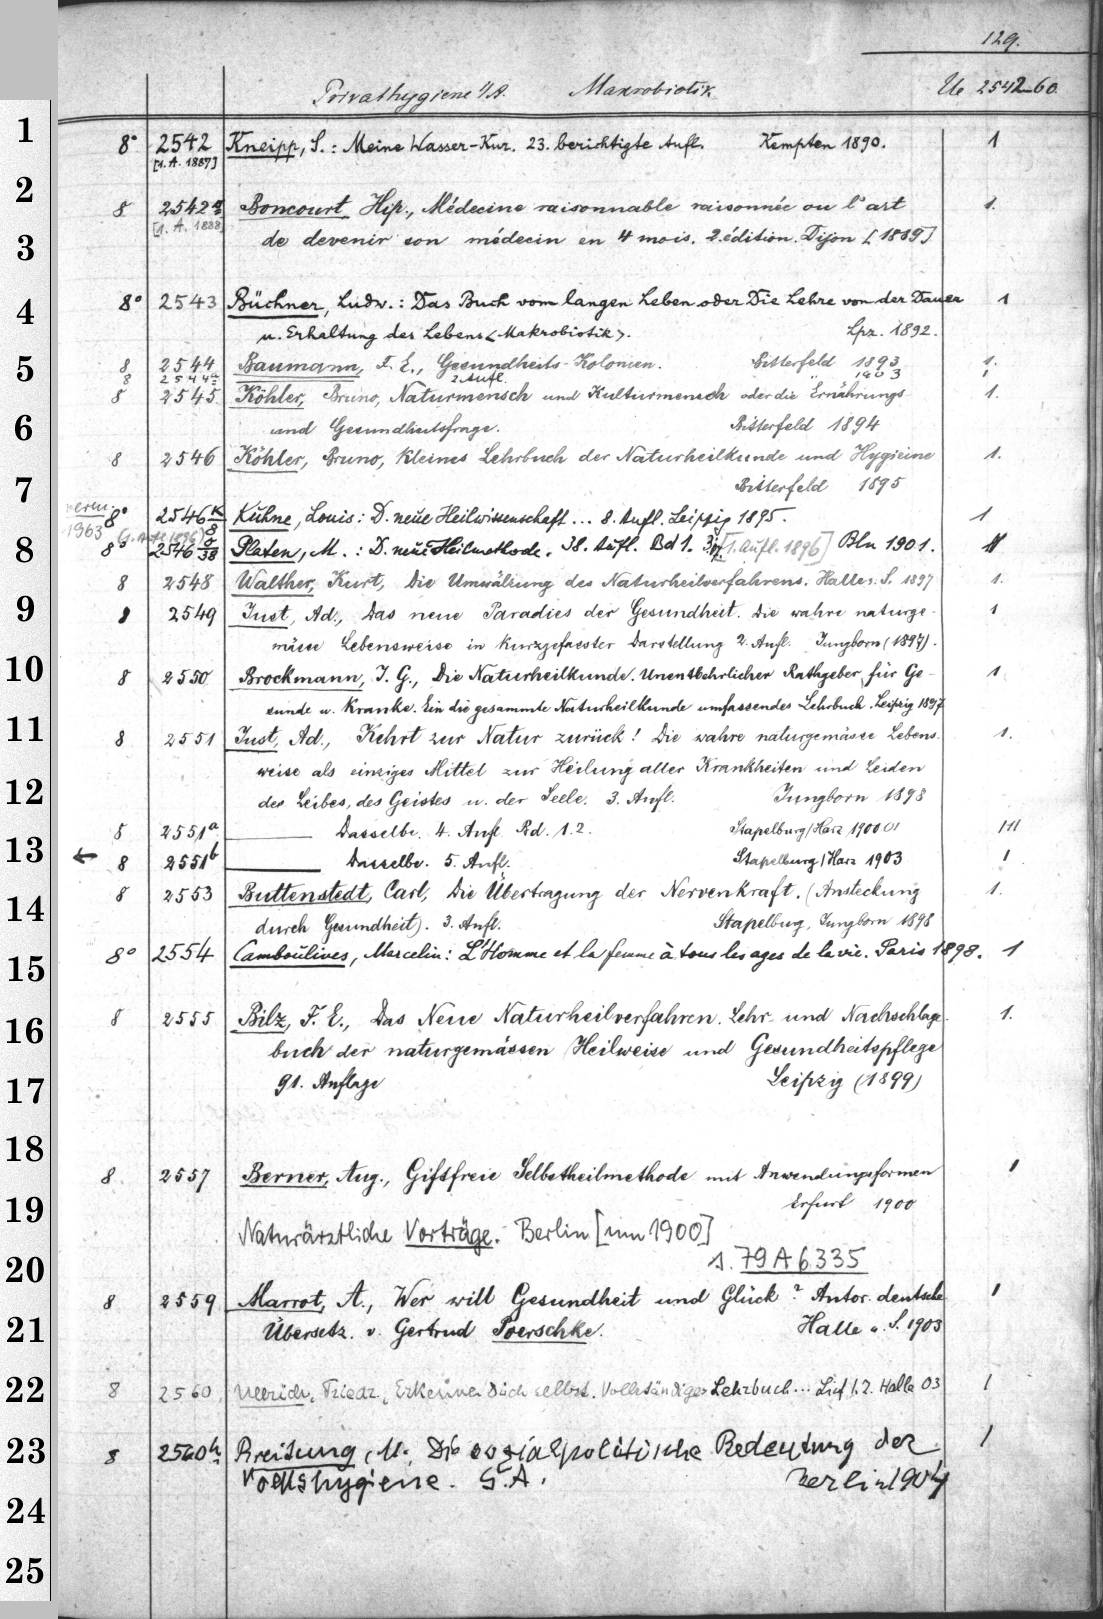 129.
Privathygiene i/A. Makrobiotik Ue 2542-60
1
8° 2542 Kneipp, S.: Meine Wasser-Kur. 23. berichtigte Aufl. Kempten 1890. 1
[1. A. 1887]
2
8 2542a Boncourt, Hip., Médecine raisonnable raisonnée ou l'art 1.
[1. A. 1888
3 de devenir son médecin en 4 mois. 2. édition. Dijon [1889]
4 8° 2543 Büchner, Ludw.: Das Buch vom langen Leben oder Die Lehre von der Dauer 1
u. Erhaltung des Lebens <Makrobiotik>. Lpz. 1892.
5 8 2544 Baumann, F. E., Gesundheits-Kolonien. Bitterfeld 1893 1.
8 2544a 2. Aufl. " 1903 1
8 2545 Köhler, Bruno, Naturmensch und Kulturmensch oder die Ernährungs- 1.
6 und Gesundheitsfrage. Bitterfeld 1894
8 2546 Köhler, Bruno, Kleines Lehrbuch der Naturheilkunde und Hygieine 1.
7 Bitterfeld 1895
8° 2546 K/8 Kühne, Louis: D. neue Heilwissenschaft... 8. Aufl. Leipzig 1895. 1
1963
8 8° 2546 Platen, M.: D. neue Heilmethode. 38. Aufl. Bd 1. 3. [1. Aufl. 1896] Bln 1901.
8 2548 Walther, Kurt, Die Umwälzung des Naturheilverfahrens. Halle a. S. 1897 1.
9 8 2549 Just, Ad., Das neue Paradies der Gesundheit. Die wahre naturge- 1
mässe Lebensweise in kurzgefasster Darstellung 2. Aufl. Jungborn (1897).
10 8 2550 Brockmann, J. G., Die Naturheilkunde. Unentbehrlicher Rathgeber für Ge- 1
sunde u. Kranke. Ein die gesammte Naturheilkunde umfassendes Lehrbuch. Leipzig 1897
11 8 2551 Just, Ad., Kehrt zur Natur zurück! Die wahre naturgemässe Lebens- 1.
weise als einziges Mittel zur Heilung aller Krankheiten und Leiden
12 des Leibes, des Geistes u. der Seele. 3. Aufl. Jungborn 1898
8 2551a Dasselbe. 4. Aufl. Bd. 1.2. Stapelburg/Harz 1900 01
13 ← 8 2551b Dasselbe. 5. Aufl. Stapelburg/Harz 1903 1
8 2553 Buttenstedt, Carl, Die Übertragung der Nervenkraft. (Ansteckung 1.
14 durch Gesundheit). 3. Aufl. Stapelburg, Jungborn 1898
15 8° 2554 Camboulives, Marcelin: L'Homme et la femme à tous les ages de la vie. Paris 1898. 1
16 8 2555 Bilz, F. E., Das Neue Naturheilverfahren. Lehr- und Nachschlage- 1.
buch der naturgemässen Heilweise und Gesundheitspflege
17 91. Auflage Leipzig (1899)
18
8 2557 Berner, Aug., Giftfreie Selbstheilmethode mit Anwendungsformen 1
19 Erfurt 1900
Naturärztliche Vorträge. Berlin [um 1900]
20 s. 79 A 6335
8 2559 Marrot, A., Wer will Gesundheit und Glück? Autor. deutsche 1
21 Übersetz. v. Gertrud Poerschke. Halle a. S. 1903
22 8 2560 Friedr., Erkenne dich selbst. Vollständiges Lehrbuch... Lief 1.2. Halle 03 1
23 8 2560b Kreisung, M. Die sozialpolitische Bedeutung der 1
Volkshygiene. S. A. Berlin 1904
24
25